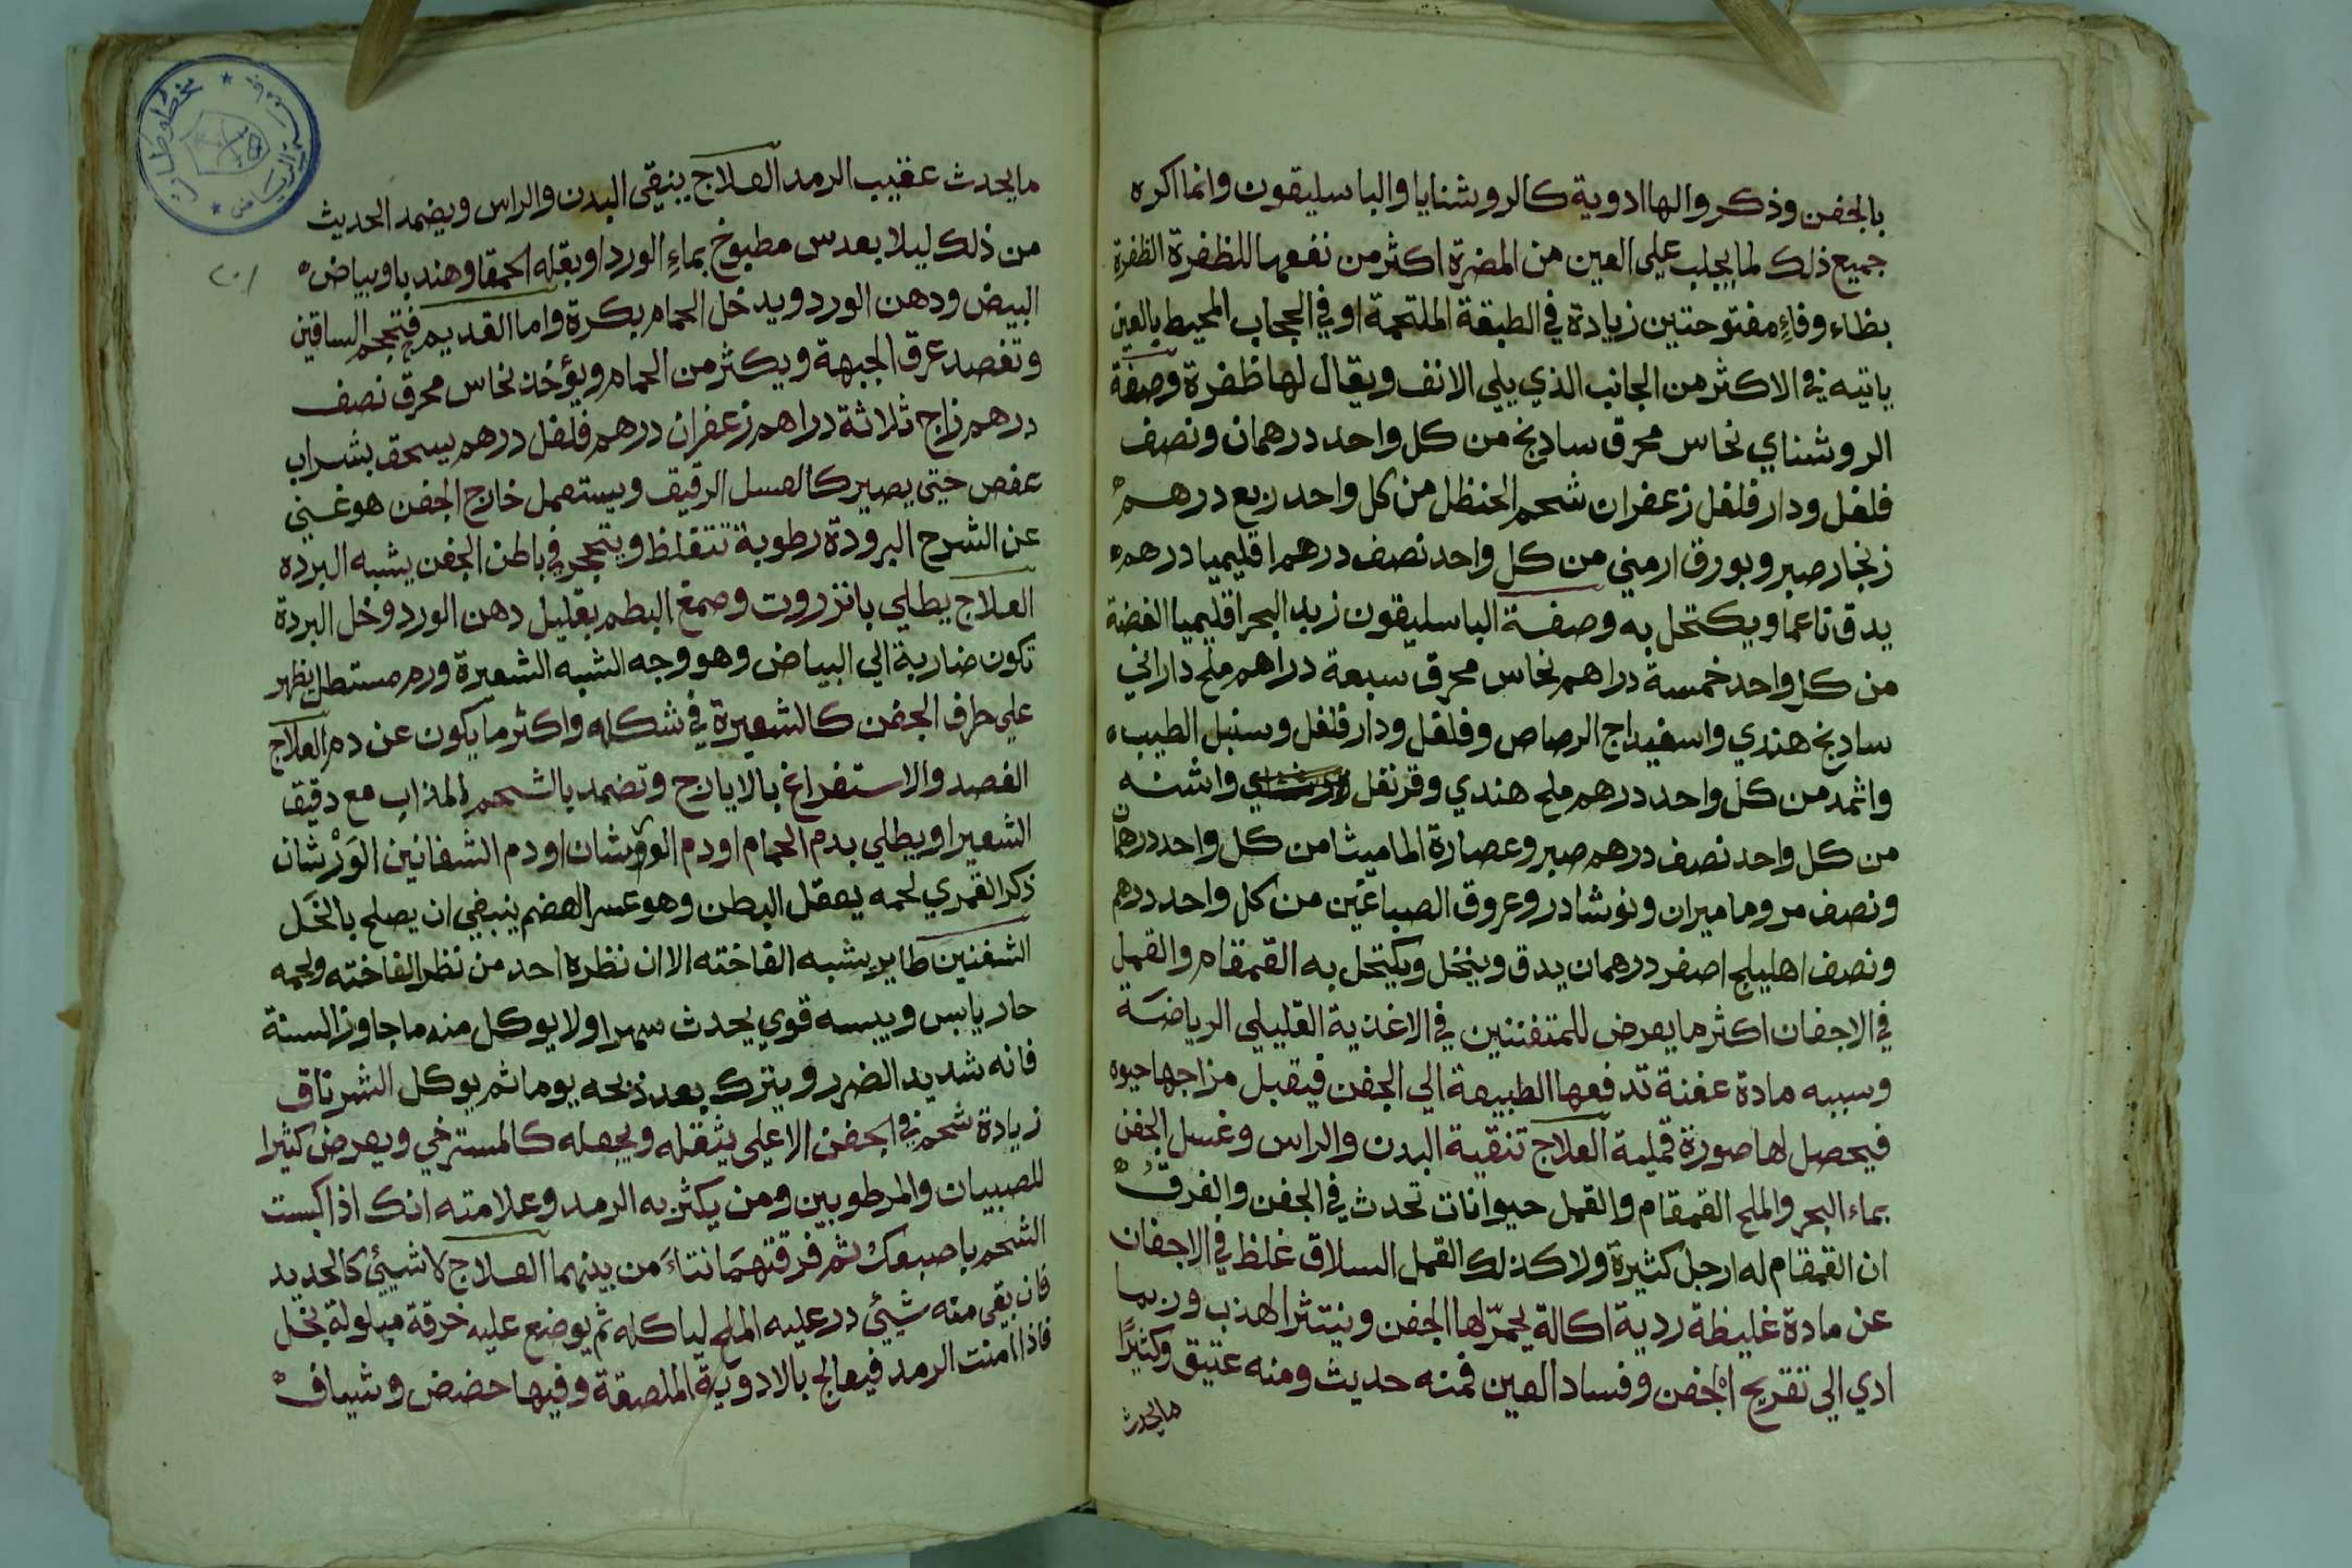 بالجفن وذكروا لها ادوية كالروشنايا والباسليقون وانما اكره
جميع ذلك لما يجلب على العين من المضرة اكثر من نفعها للظفرة الظفرة
بظاء وفاءٍ مفتوحتين زيادة في الطبقة الملتحمة او في الحجاب المحيط بالعين
ياتيه في الاكثر من الجانب الذي يلي الانف ويقال لها ظفرة وصفة
الروشناي نحاس محرق سادنج من كل واحد درهمان ونصف
فلفل ودار فلفل زعفران شحم الحنظل من كل واحد ربع درهم
زنجار صبر وبورق ارمني من كل واحد نصف درهم اقليميا درهم
يدق ناعما ويكتحل به وصفة الباسليقون زبد البحر اقليميا الفضة
من كل واحد خمسة دراهم نحاس محرق سبعة دراهم ملح داراني
سادنج هندي واسفيداج الرصاص وفلفل ودار فلفل وسنبل الطيب
واثمد من كل واحد درهم ملح هندي وقرنفل واشنه
من كل واحد نصف درهم صبر وعصارة الماميثا من كل واحد درهمان
ونصف مر وماميران ونوشادر وعروق الصباغين من كل واحد درهم
ونصف اهليلج اصفر درهمان يدق وينخل ويكتحل به القمقام والقمل
في الاجفان اكثر ما يعرض للمتفننين في الاغذية القليلي الرياضة
وسببه مادة عفنة تدفعها الطبيعة الي الجفن فيقبل مزاجها حيوه
فيحصل لها صورة قملية العلاج تنقية البدن والراس وغسل الجفن
بماء البحر والملح القمقام والقمل حيوانات تحدث في الجفن والفرقُ
ان القمقام له ارجل كثيرة ولا كذلك القمل السلاق غلظ في الاجفان
عن مادة غليظة ردية اكالة يحمرّ لها الجفن وينتثر الهذب وربما
ادي الي تقريح الجفن وفساد العين فمنه حديث ومنه عتيق وكثيرًا
ما يحدث
ما يحدث عقيب الرمد العلاج ينقي البدن والراس ويضمد الحديث
من ذلك ليلا بعدس مطبوخ بماءِ الورد او بقله الحمقا وهندبا وبياض
البيض ودهن الورد ويدخل الحمام بكرة واما القديم فتحجم الساقين
وتفصد عرق الجبهة ويكثر من الحمام ويؤخذ نحاس محرق نصف
درهم زاج ثلاثة دراهم زعفران درهم فلفل درهم يسحق بشراب
عفص حتي يصير كالعسل الرقيق ويستعمل خارج الجفن هو غني
عن الشرح البرودة رطوبة تتغلظ ويتحجر في باطن الجفن يشبه البردة
العلاج يطلي بانزروت وصمغ البطم بقليل دهن الورد وخل البردة
تكون ضاربة الي البياض وهو وجه الشبه الشعيرة ورم مستطيل يظهر
علي حرف الجفن كالشعيرة في شكله واكثر ما يكون عن دم العلاج
الفصد والاستفراغ بالايارج وتضمد بالشحم المذاب مع دقيق
الشعير او يطلي بدم الحمام او دم الورشان او دم الشفانين الوَرْشان
ذكر القمري لحمه يعقل البطن وهو عسر الهضم ينبغي ان يصلح بالخَل
الشفنين طاير يشبه الفاخته الا ان نظره احد من نظر الفاخته ولحمه
حار يابس ويبسه قوي يحدث سهرا ولا يوكل منه ما جاوز السنة
فانه شديد الضرر ويترك بعد ذبحه يوما ثم يوكل الشرناق
زيادة شحم في الجفن الاعلي يثقله ويجعله كالمسترخي ويعرض كثيرا
للصبيان والمرطوبين ومن يكثر به الرمد وعلامته انك اذا كبست
الشحم باصبعك ثم فرقتهمَا نتاءَ من بينهما العلاج لا شيئي كالحديد
فان بقي منه شيئي در عليه الملح لياكله ثم يوضع عليه خرقة مبلولة بخل
فاذا امنت الرمد فيعالج بالادوية الملصقة وفيها حضض وشياف